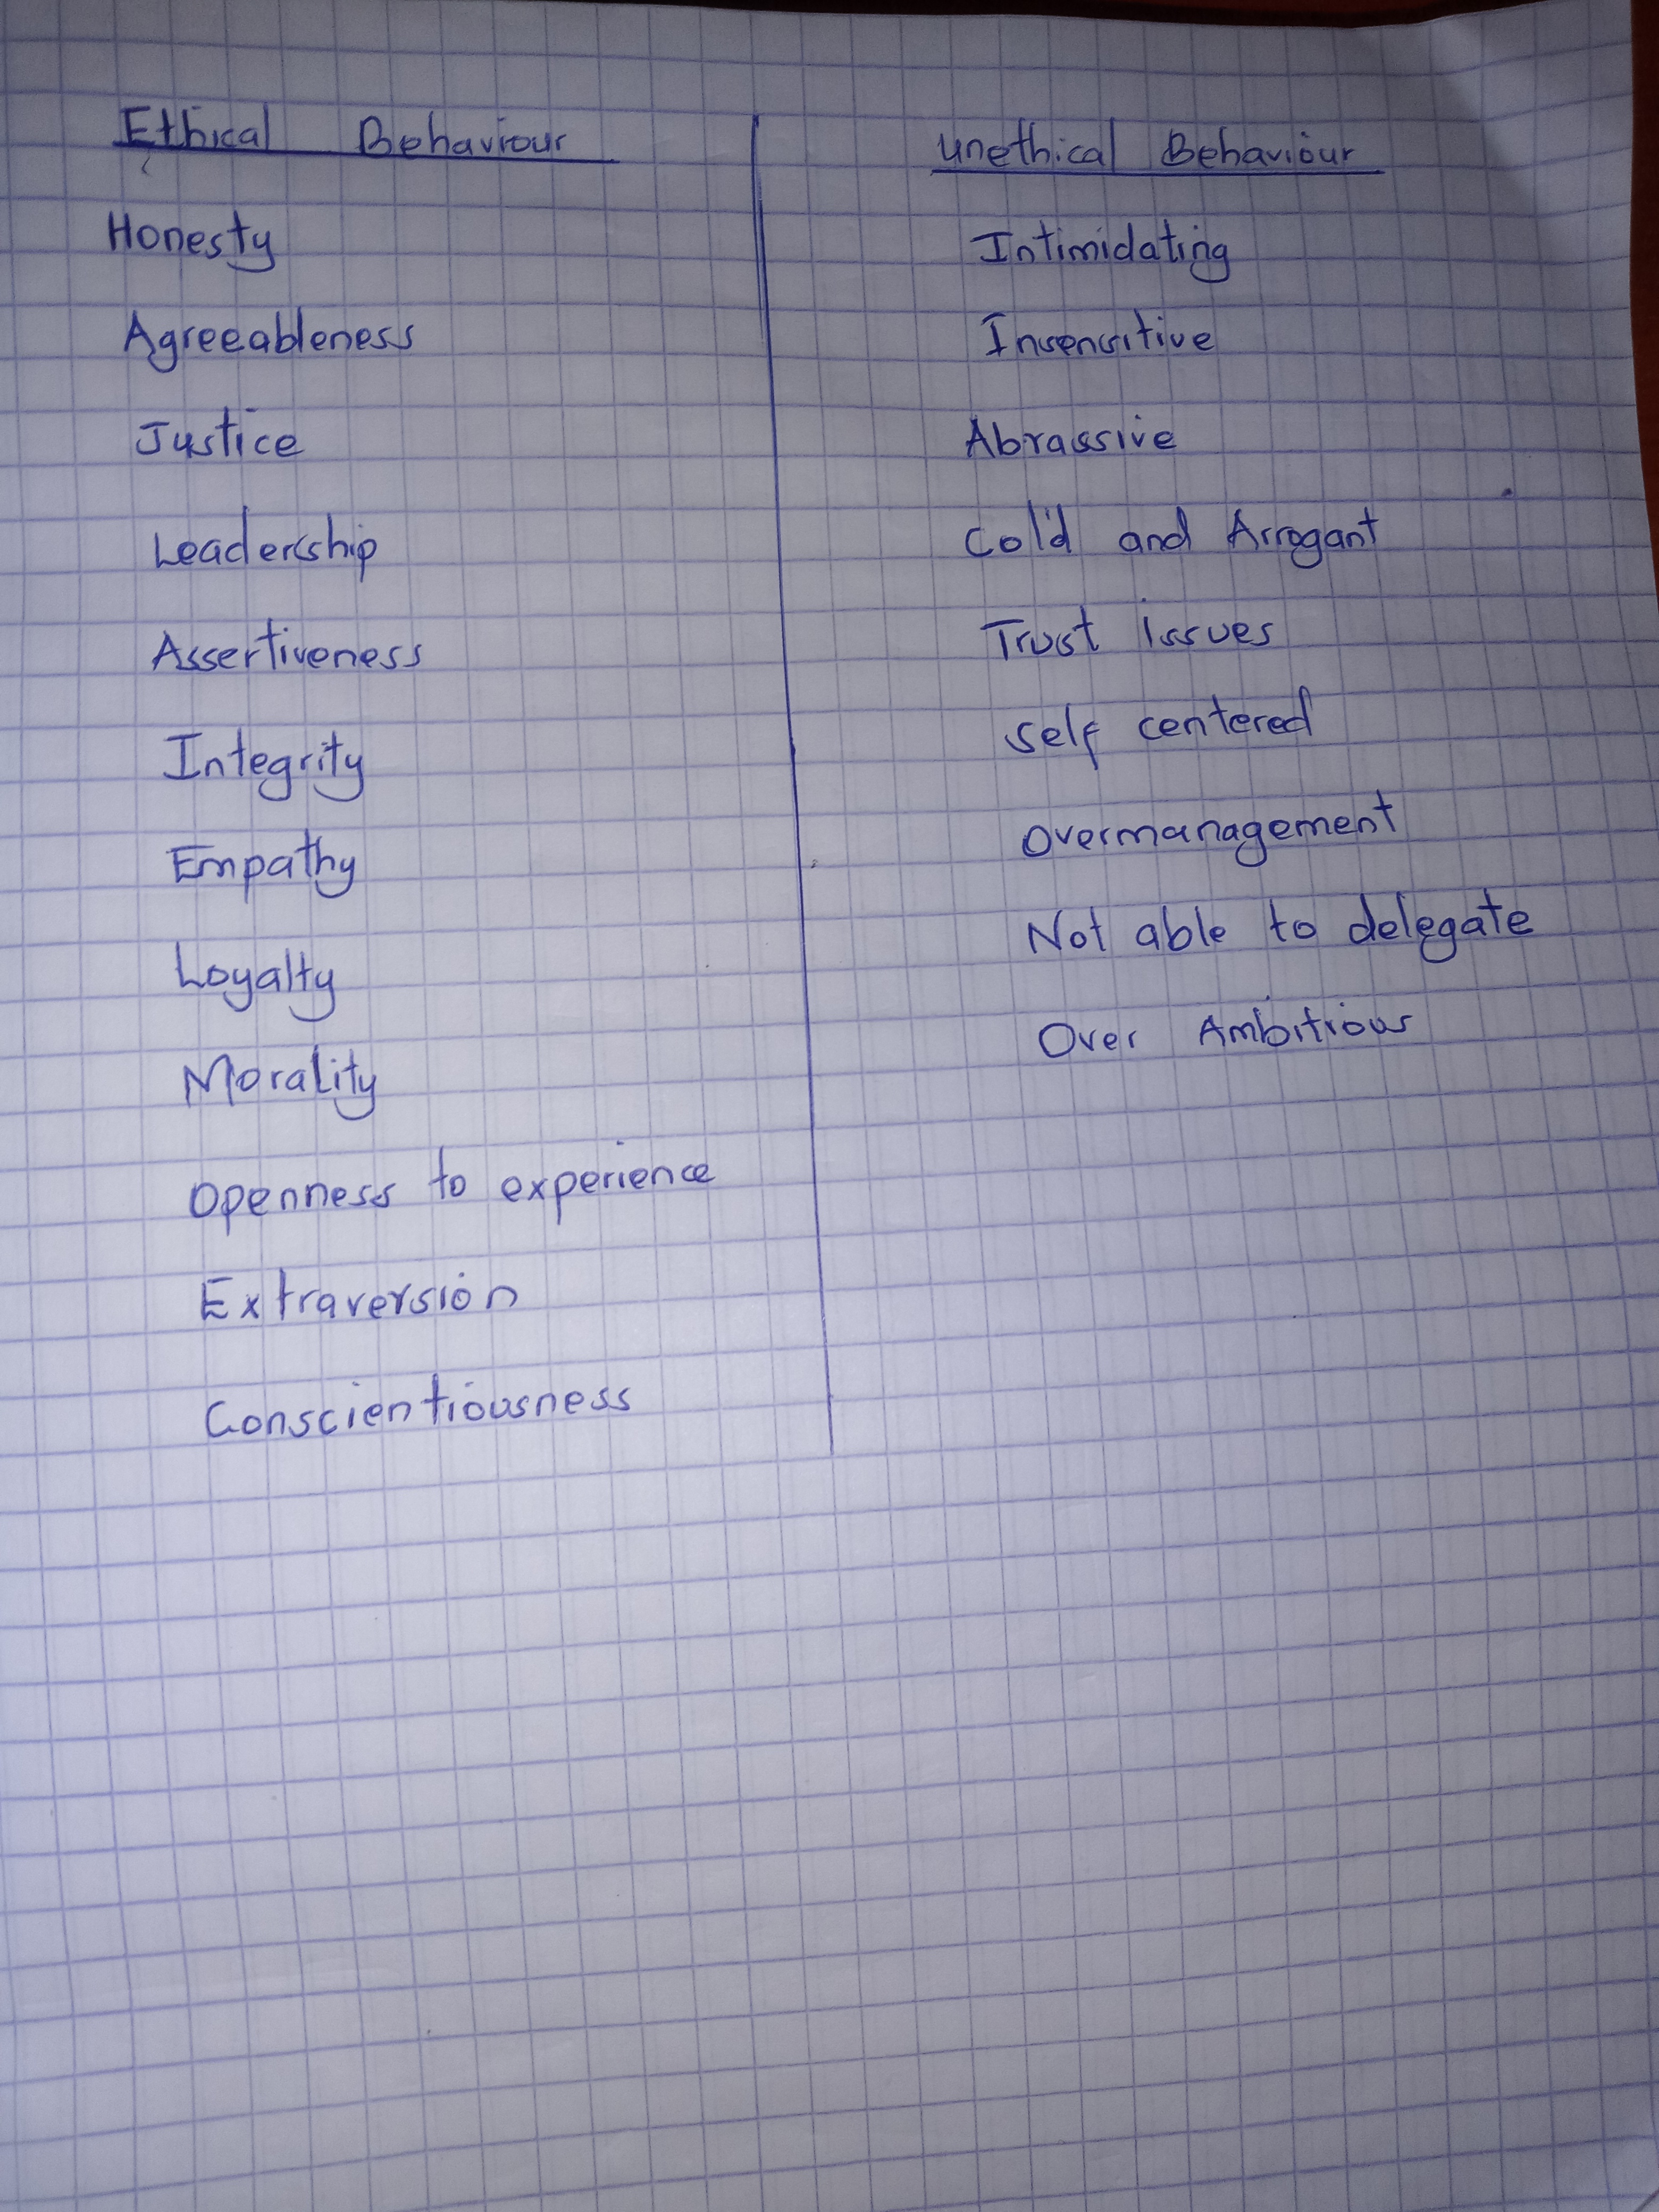 Ethical Behaviour
Honesty
Agreeableness
Justice
Leadership
Assertiveness
Integrity
Empathy
Loyalty
Morality
Openness to experience
Extraversion
Conscientiousness
Unethical Behaviour
Intimidating
Insensitive
Abrassive
Cold and Arrogant
Trust issues
Self centered
Overmanagement
Not able to delegate
Over Ambitious